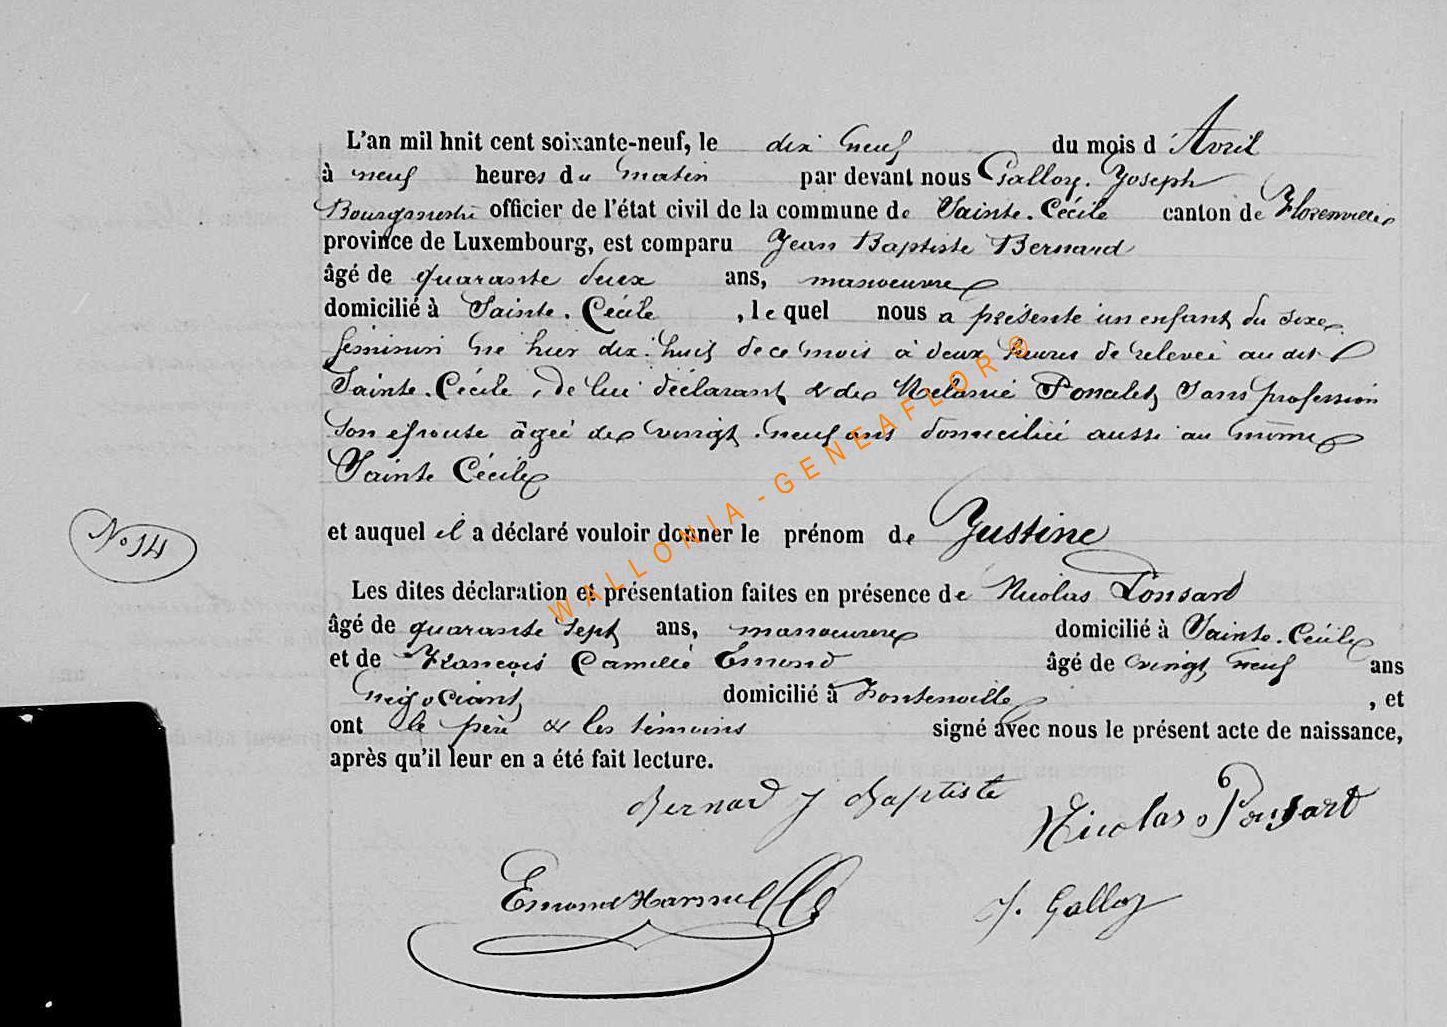 L'an mil hnit cent soixante-neuf, le dix neuf du mois d'Avril
à neuf heures du matin par devant nous Galloy. Joseph
Bourgmestre officier de l'état civil de la commune de Sainte-Cécile canton de Florenville
province de Luxembourg, est comparu Jean Baptiste Bernard
âgé de quarante deux ans, manoeuvre
domicilié à Sainte-Cécile, le quel nous a présenté un enfant du sexe
féminin né hier dix-huit de ce mois à deux heures de relevée au dit
Sainte-Cécile, de lui déclarant & de Mélanie Poncelet sans profession
son épouse âgée de vingt-neuf ans domiciliée aussi au même
Sainte Cécile
et auquel il a déclaré vouloir donner le prénom de Justine
N° 14
Les dites déclaration et présentation faites en présence de Nicolas Ponsard
âgé de quarante sept ans, manoeuvre domicilié à Sainte-Cécile
et de François Camille Emond âgé de vingt neuf ans
négociant domicilié à Fontenoille, et
ont le père & les témoins signé avec nous le présent acte de naissance,
après qu'il leur en a été fait lecture.
Bernard J Baptiste
Nicolas Ponsart
Emond
J. Galloy
WALLONIA-GENEAFLOR®